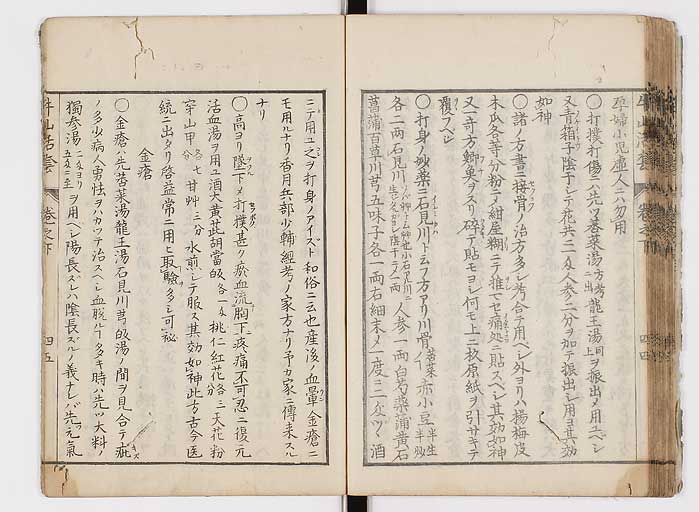 孕婦小児虚人ニハ勿用
〇打撲打傷ニハ先ツ香菜湯方考ニ出龍王湯同ヲ振出メ用ユベシ
又青箱子陰干シテ花共ニ人参二分ヲ加テ振出シ用ヨ其効
如神
〇諸ノ方書ニ接骨ノ治方多シ考合テ用ベシ外ヨリハ楊梅皮
木瓜各等分粉ニメ紺屋糊ニテ推マゼ痛処ニ貼スベシ其効如神
又一奇方郷東ヲスリ碎テ貼モヨシ何モ上ニ杦原紙ヲ引サキテ
覆フベシ
〇打身ノ妙薬ニ石見川ト云フ方アリ川骨 赤小豆半生半炒
各二両石見川 人参一両白芍薬蒲黄石
菖蒲百草川芎五味子各一両右細末メ一度ニ二匁ツヽ酒
ニテ用ユ之ヲ打身ノアイズト和俗ニ云也産後ノ血暈金瘡ニ
モ用ルナリ香月兵部少輔經考ノ家方ナリ予カ家ニ傳来スル
ナリ
〇高ヨリ墜下メ打撲甚ク瘀血流胸下疼痛不可忍ニ復元
活血湯ヲ用ユ酒大黄柴胡當皈各一匁桃仁紅花各三分天花粉
穿山甲各七分甘艸三分水煎シテ服ス其効如神此方古今医
統ニ出タリ啓益常ニ用ヒ取驗多シ可秘
金瘡
〇金瘡ハ先苦菜湯龍王湯石見川芎皈湯ノ間ヲ見合テ疵
ノ多少病人勇怯ヲハカツテ治スベシ血脱ルヿ多キ時ハ先ツ大料ノ
獨参湯二匁ヨリ五匁ニ至ヲ用ベシ陽長ズレハ陰長ズルノ義ナレバ先元氣
牛山活套
巻之下
四五